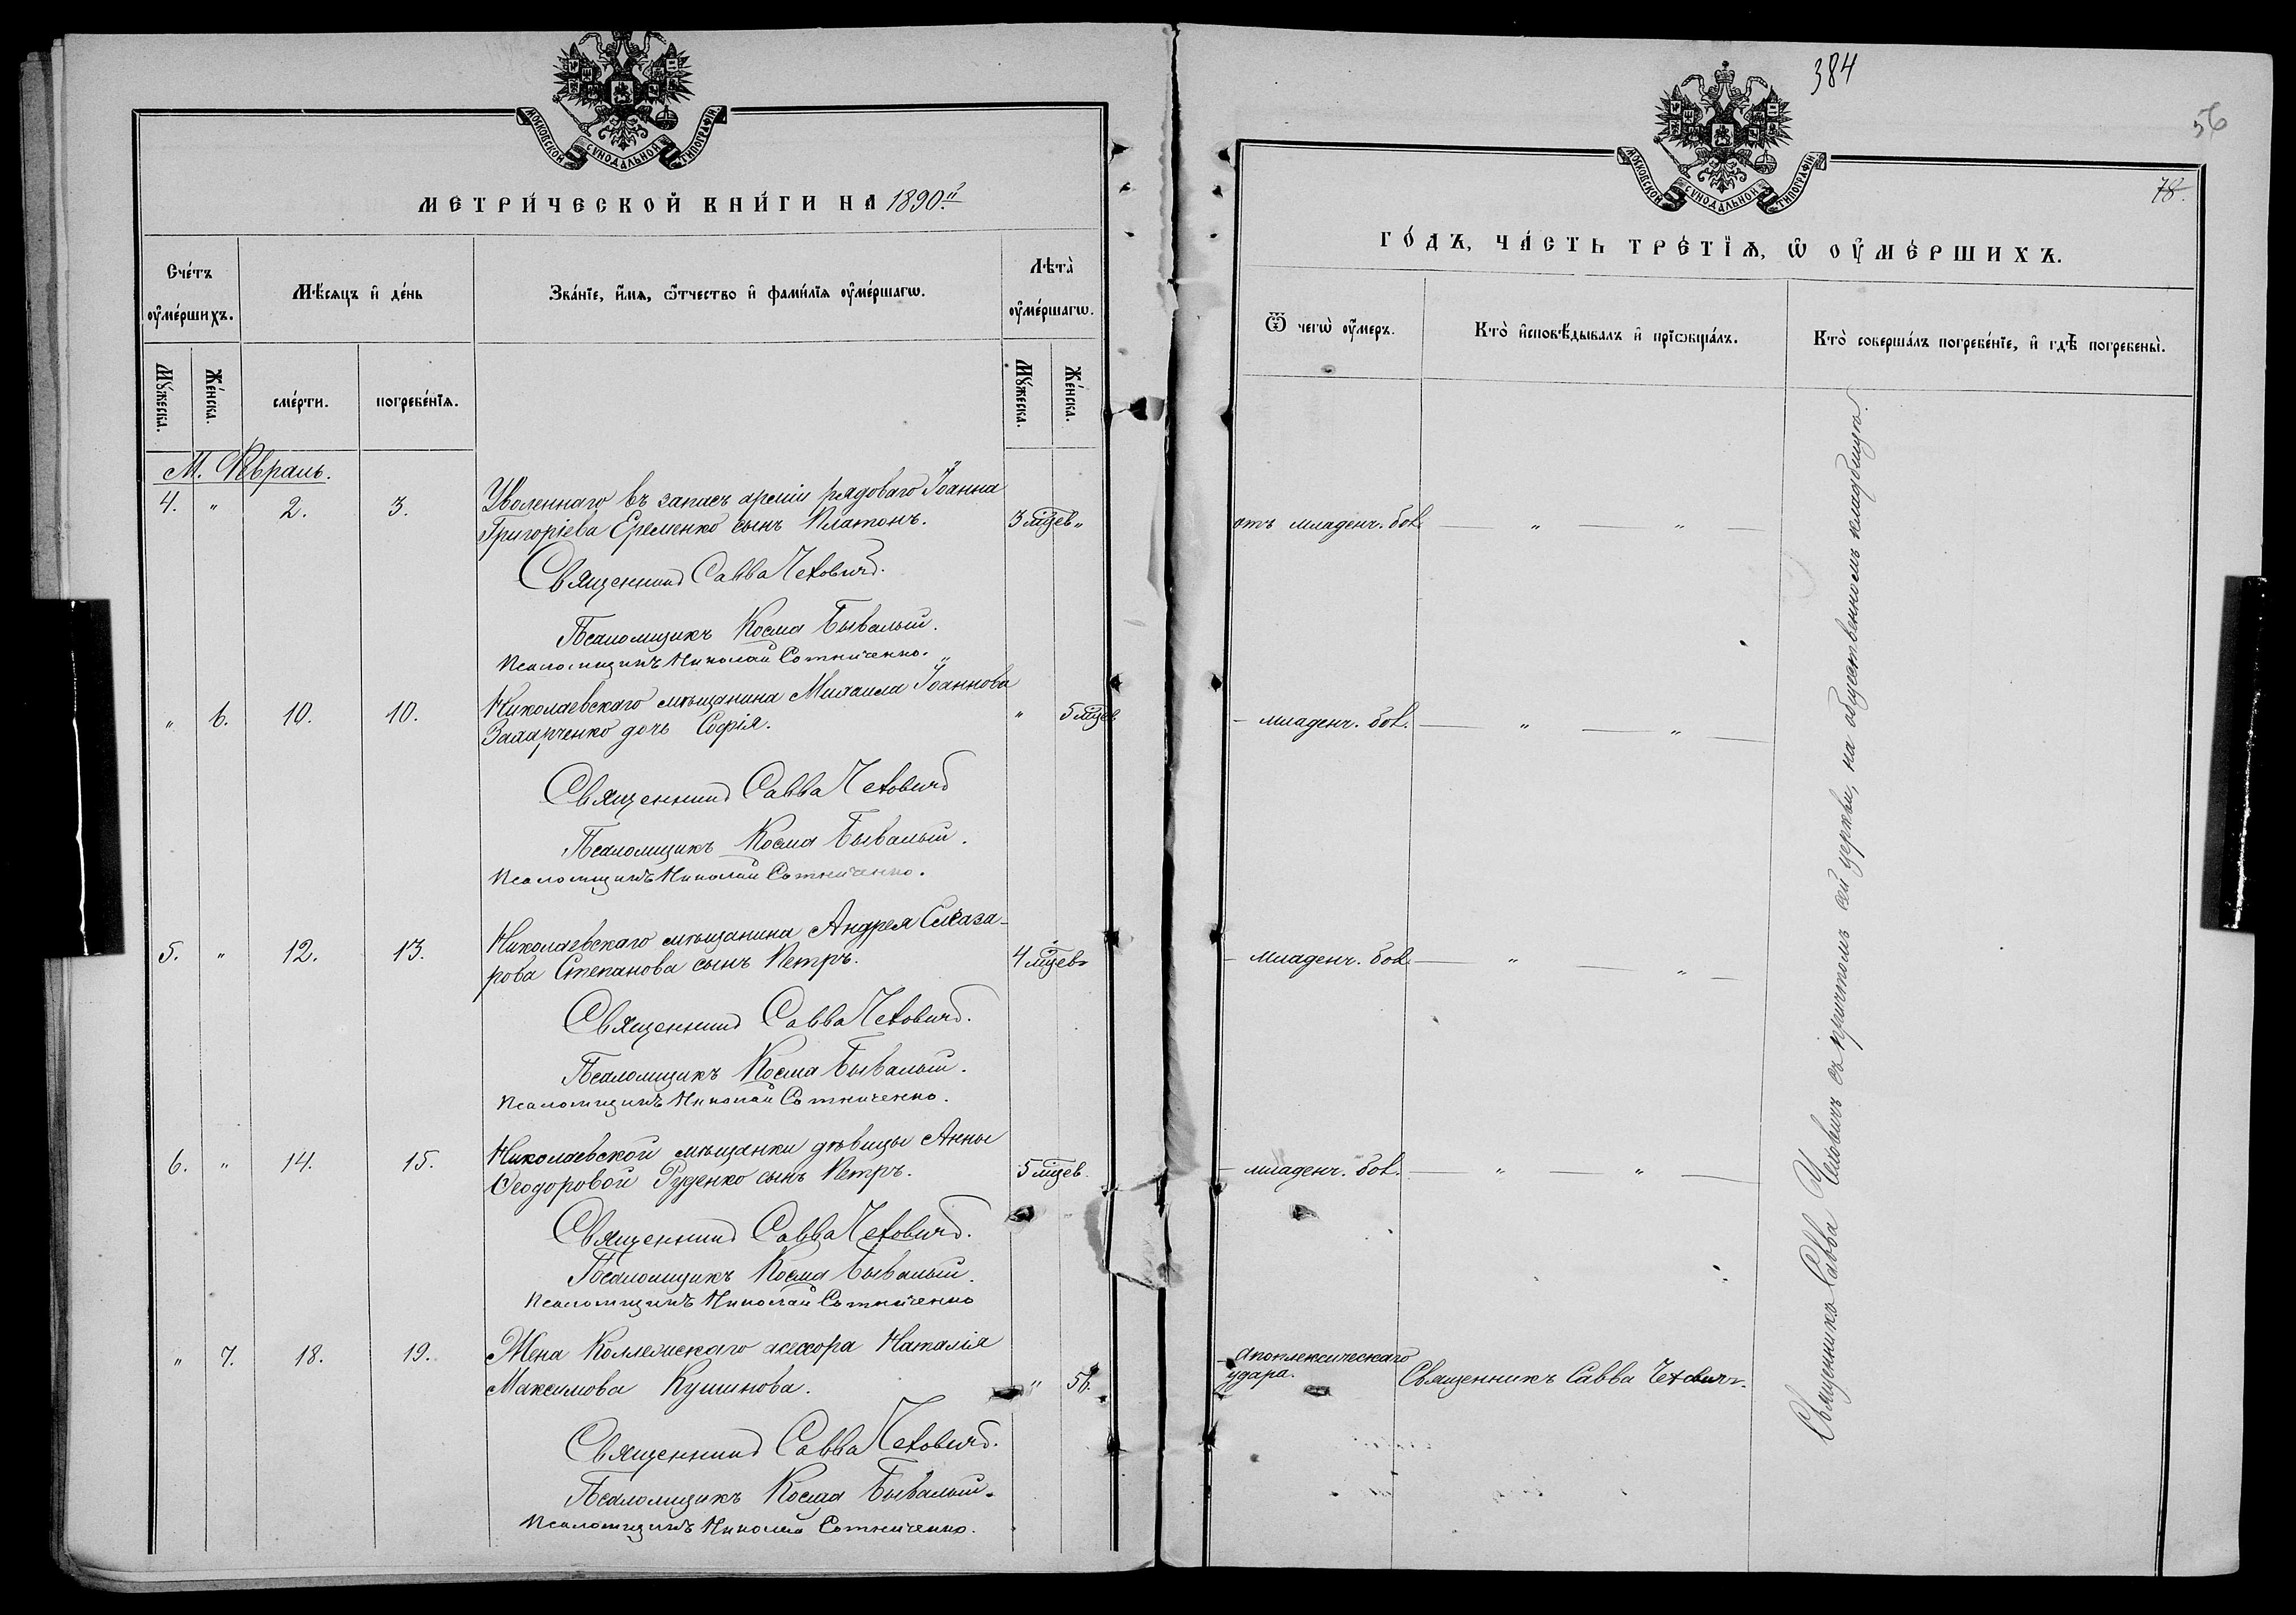 МОСКОВСКОЙ СѴНОДАЛЬНОЙ ТИПОГРАФІИ.
МЕТРИ́ЧЕСКОЙ КНИ́ГИ НА 1890.й
Сче́тъ
ᲂу҆ме́ршихъ.
Мѣ́сяцъ и҆ де́нь
Зва́нїе, и҆́мѧ, ѻ҆́тчество и҆ фами́лїѧ ᲂу҆ме́ршагѡ.
Лѣта̀
ᲂу҆ме́ршагѡ.
Мꙋ́жеска.
Же́нска.
сме́рти.
погребе́нїѧ.
Мꙋ́жеска.
Же́нска.
М. Февраль.
4. " 2. 3. Уволеннаго въ запасъ арміи рядоваго Іоанна
Григоріева Еременко сынъ Платонъ. 3 мцев "
Священникъ Савва Чехович.
Псаломщикъ Косма Бывалый.
Псаломщикъ Николай Сотниченко.
" 6. 10. 10. Николаевскаго мѣщанина Михаила Іоаннова
Захарченко дочь Софія. " 5 мцев.
Священникъ Савва Чехович
Псаломщикъ Косма Бывалый.
Псаломщикъ Николай Сотниченко.
5. " 12. 13. Николаевскаго мѣщанина Андрея
Степанова сынъ Петръ. 4 мцев
Священникъ Савва Чехович.
Псаломщикъ Косма Бывалый.
Псаломщикъ Николай Сотниченко.
6. " 14. 15. Николаевской мѣщанки дѣвицы Анны
Ѳеодоровой Руденко сынъ Петръ. 5 мцев.
Священникъ Савва Чехович.
Псаломщикъ Косма Бывалый.
Псаломщикъ Николай Сотниченко
" 7. 18. 19. Жена Коллежскаго асессора Наталія
Максимова Кушнова. " 56.
Священникъ Савва Чехович.
Псаломщикъ Косма Бывалый.
Псаломщикъ Николай Сотниченко.
384
56
78.
МОСКОВСКОЙ СѴНОДАЛЬНОЙ ТИПОГРАФІИ.
ГО́ДЪ, ЧА́СТЬ ТРЕ́ТЇѦ, Ѡ҆ ОУ҆МЕ́РШИХЪ.
Ѿ чегѡ̀ ᲂу҆́меръ.
Кто̀ и҆сповѣ́дывалъ и҆ прїѡбща́лъ.
Кто̀ соверша́лъ погребе́нїе, и҆ гдѣ̀ погребены̀.
отъ младенч. бол. — " — " —
– младенч. бол. — " — " —
– младенч. бол. — " — " —
– младенч. бол. — " — " —
– апоплексическаго
удара. Священникъ Савва Чехович.
Священникъ Савва Чеховичъ съ причтомъ сей церкви, на общественномъ кладбищѣ.